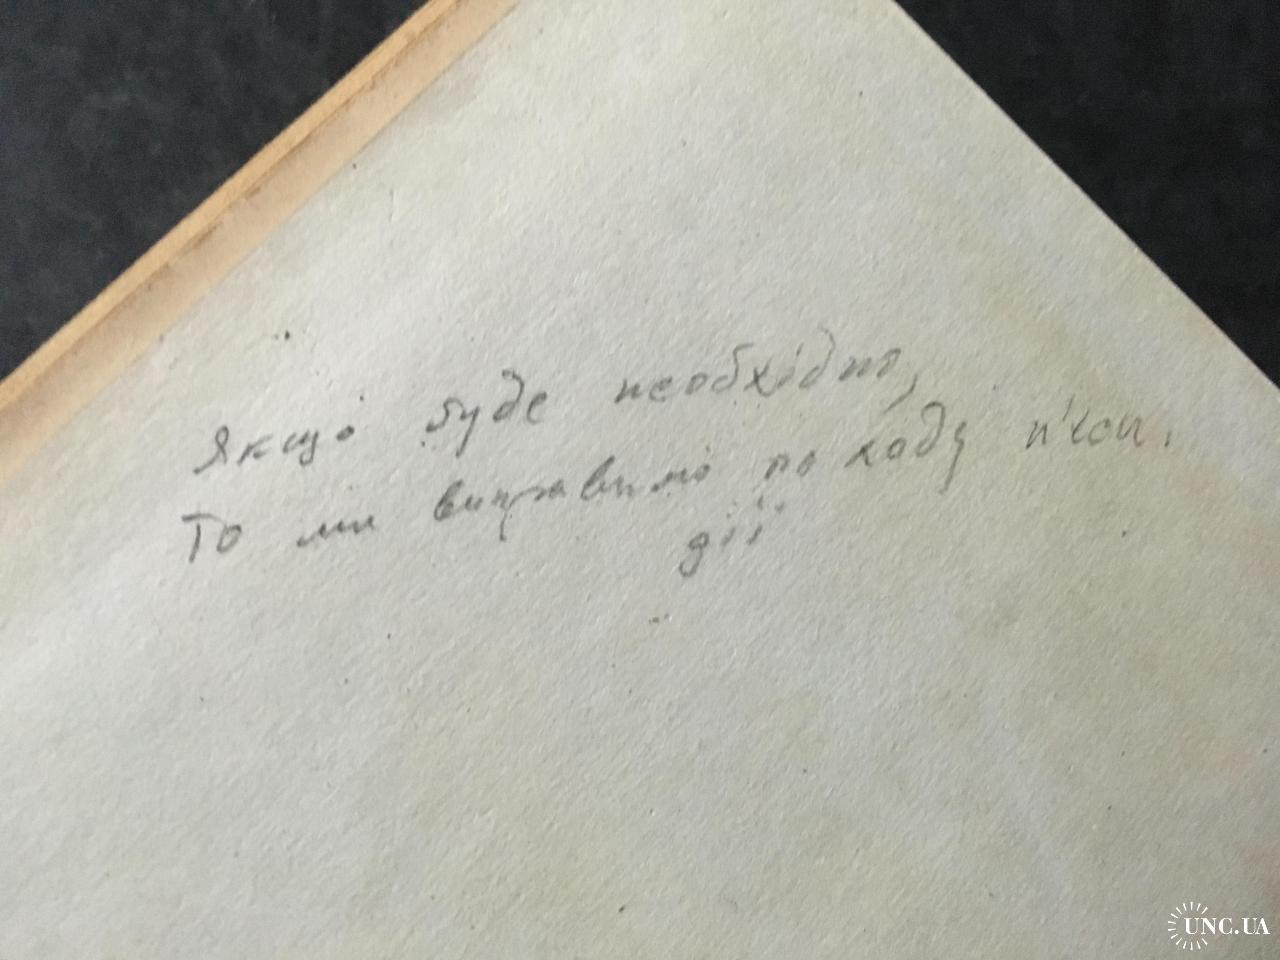 Якщо буде необхідно,
то ми виправимо по ходу п'єси.
дії
UNC.UA